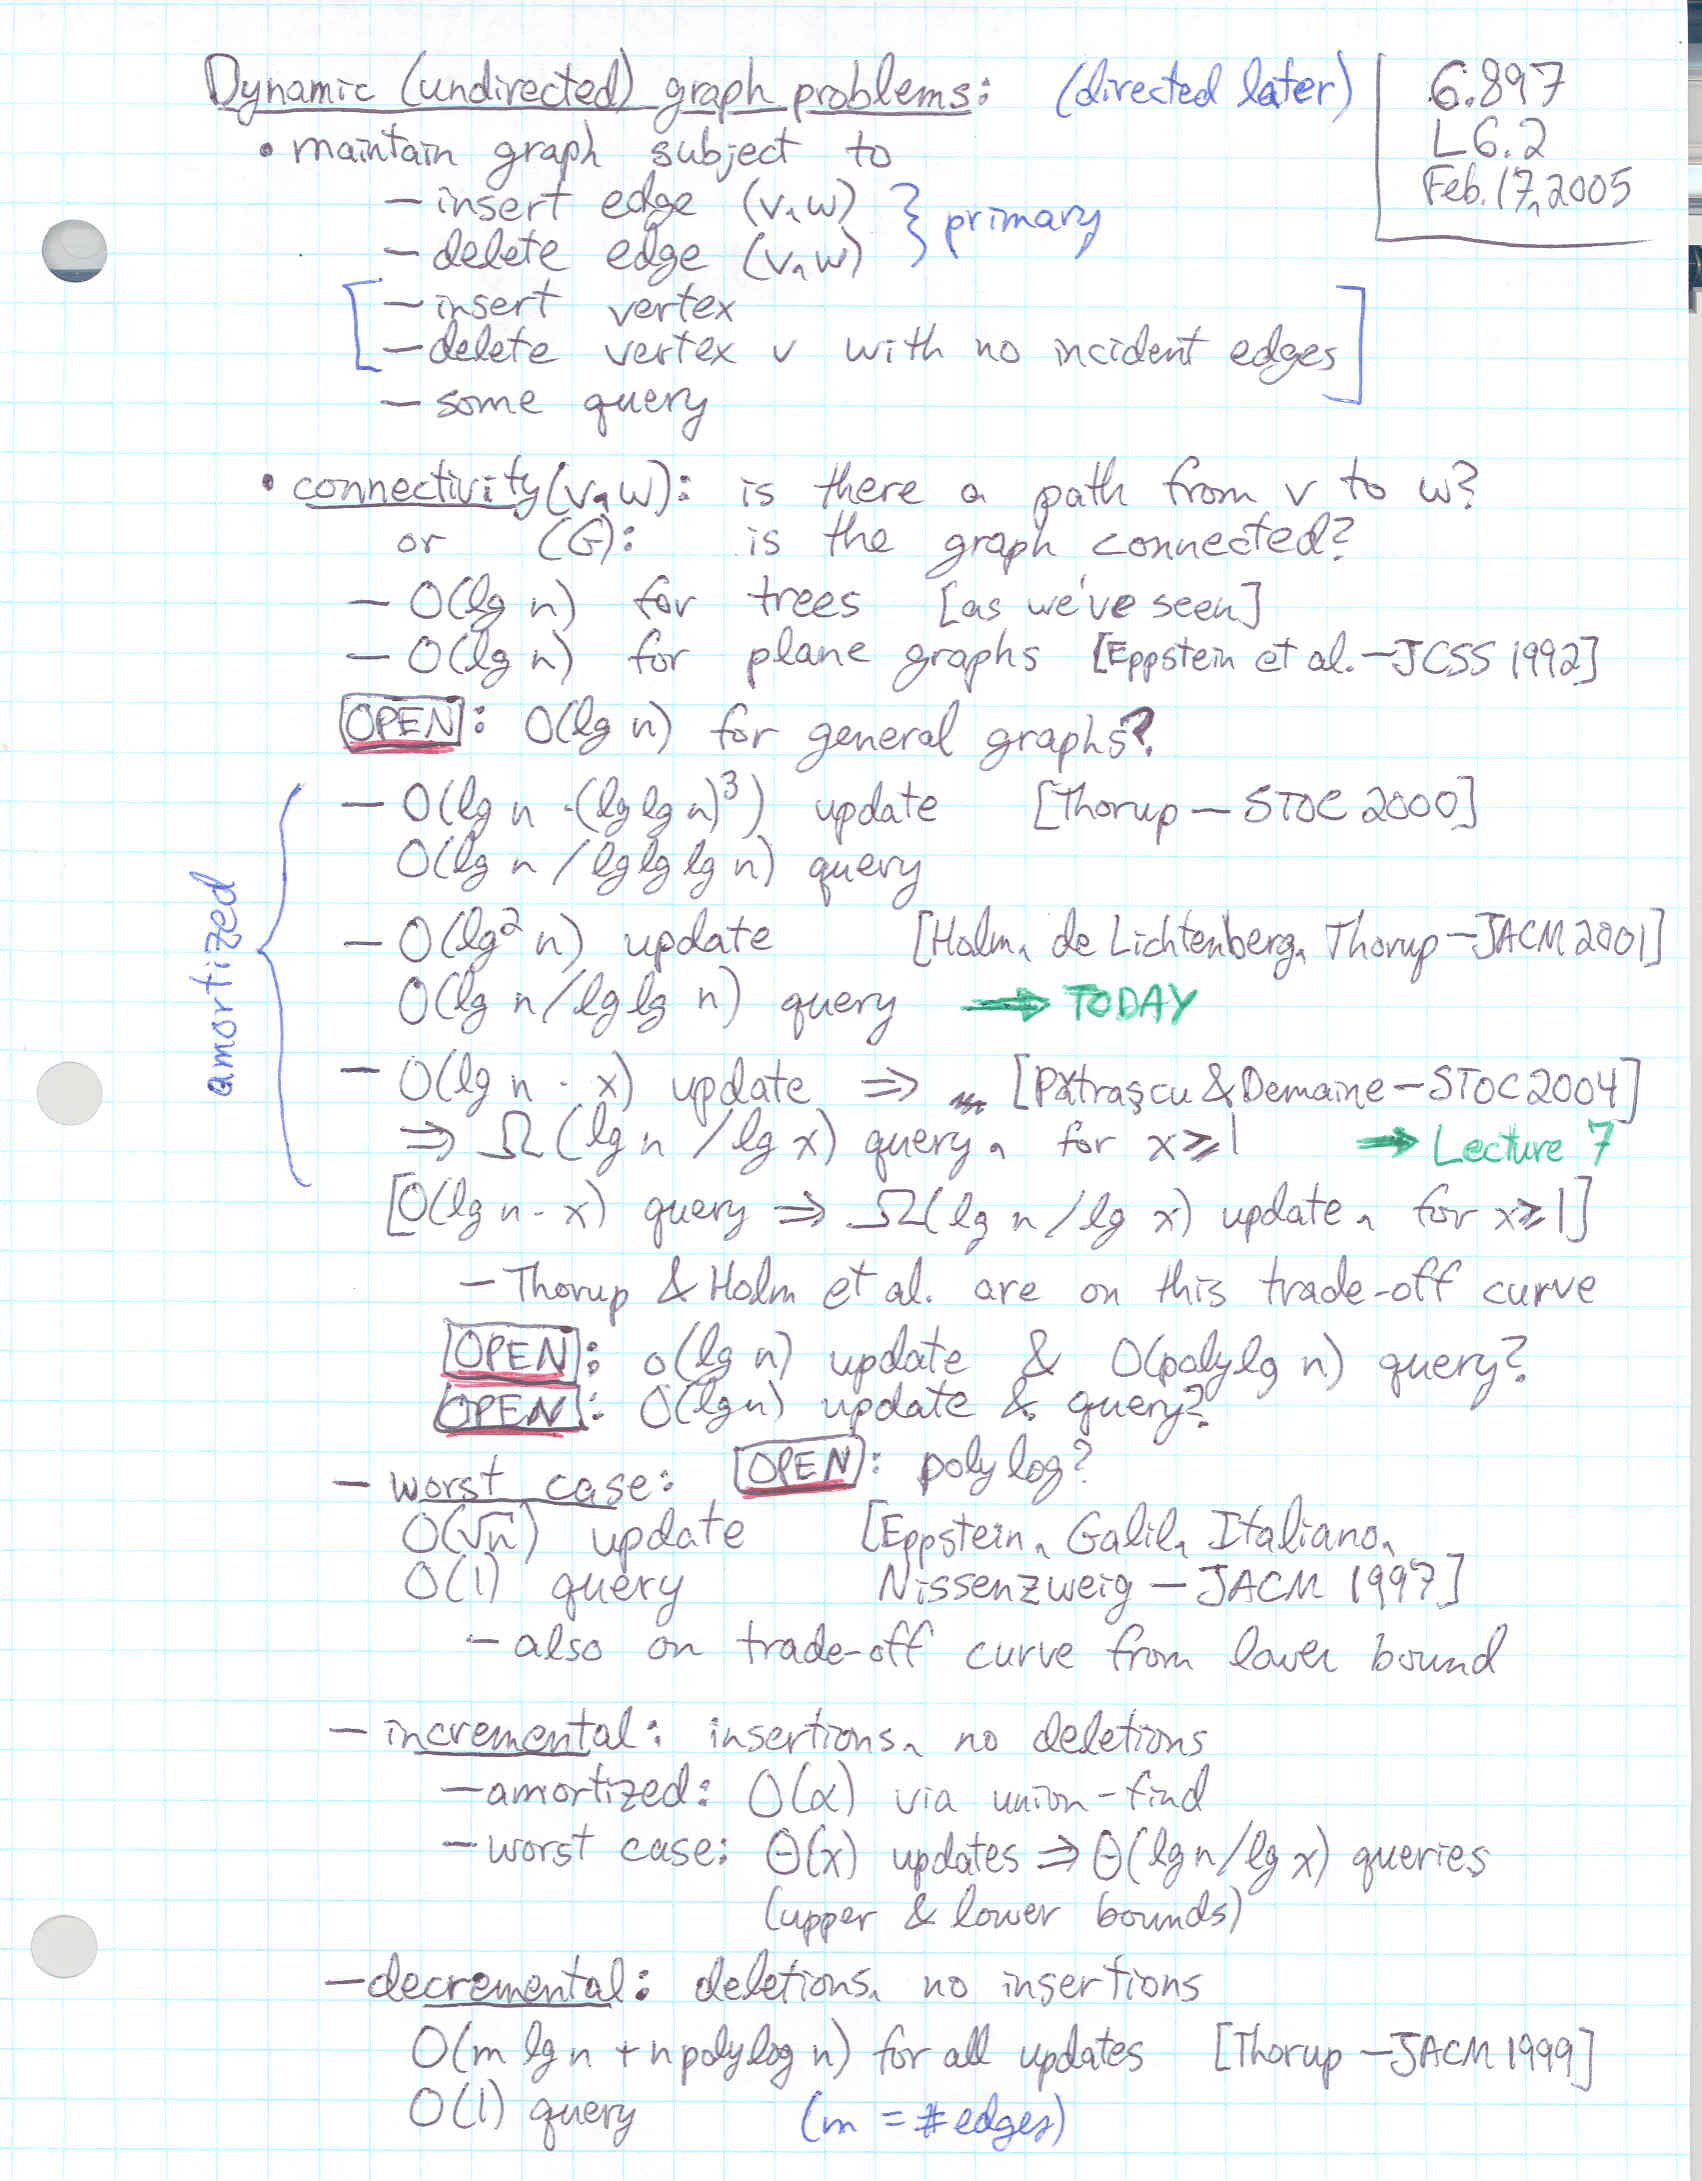 Dynamic (undirected) graph problems: (directed later)
6.897
L6.2
Feb. 17, 2005
• maintain graph subject to
– insert edge (v, w) } primary
– delete edge (v, w)
[– insert vertex
– delete vertex v with no incident edges]
– some query
• connectivity(v, w): is there a path from v to w?
or (G): is the graph connected?
– O(lg n) for trees [as we've seen]
– O(lg n) for plane graphs [Eppstein et al. – JCSS 1992]
OPEN: O(lg n) for general graphs?
amortized
– O(lg n · (lg lg n)³) update [Thorup – STOC 2000]
O(lg n / lg lg lg n) query
– O(lg² n) update [Holm, de Lichtenberg, Thorup – JACM 2001]
O(lg n / lg lg n) query → TODAY
– O(lg n · x) update ⇒ [Pătraşcu & Demaine – STOC 2004]
⇒ Ω(lg n / lg x) query, for x ≥ 1 → Lecture 7
[O(lg n · x) query ⇒ Ω(lg n / lg x) update, for x ≥ 1]
– Thorup & Holm et al. are on this trade-off curve
OPEN: o(lg n) update & O(polylg n) query?
OPEN: O(lg n) update & query?
– worst case: OPEN: polylog?
O(√n) update [Eppstein, Galil, Italiano,
O(1) query Nissenzweig – JACM 1997]
– also on trade-off curve from lower bound
– incremental: insertions, no deletions
– amortized: O(α) via union-find
– worst case: Θ(x) updates ⇒ Θ(lg n / lg x) queries
(upper & lower bounds)
– decremental: deletions, no insertions
O(m lg n + n polylog n) for all updates [Thorup – JACM 1999]
O(1) query (m = # edges)